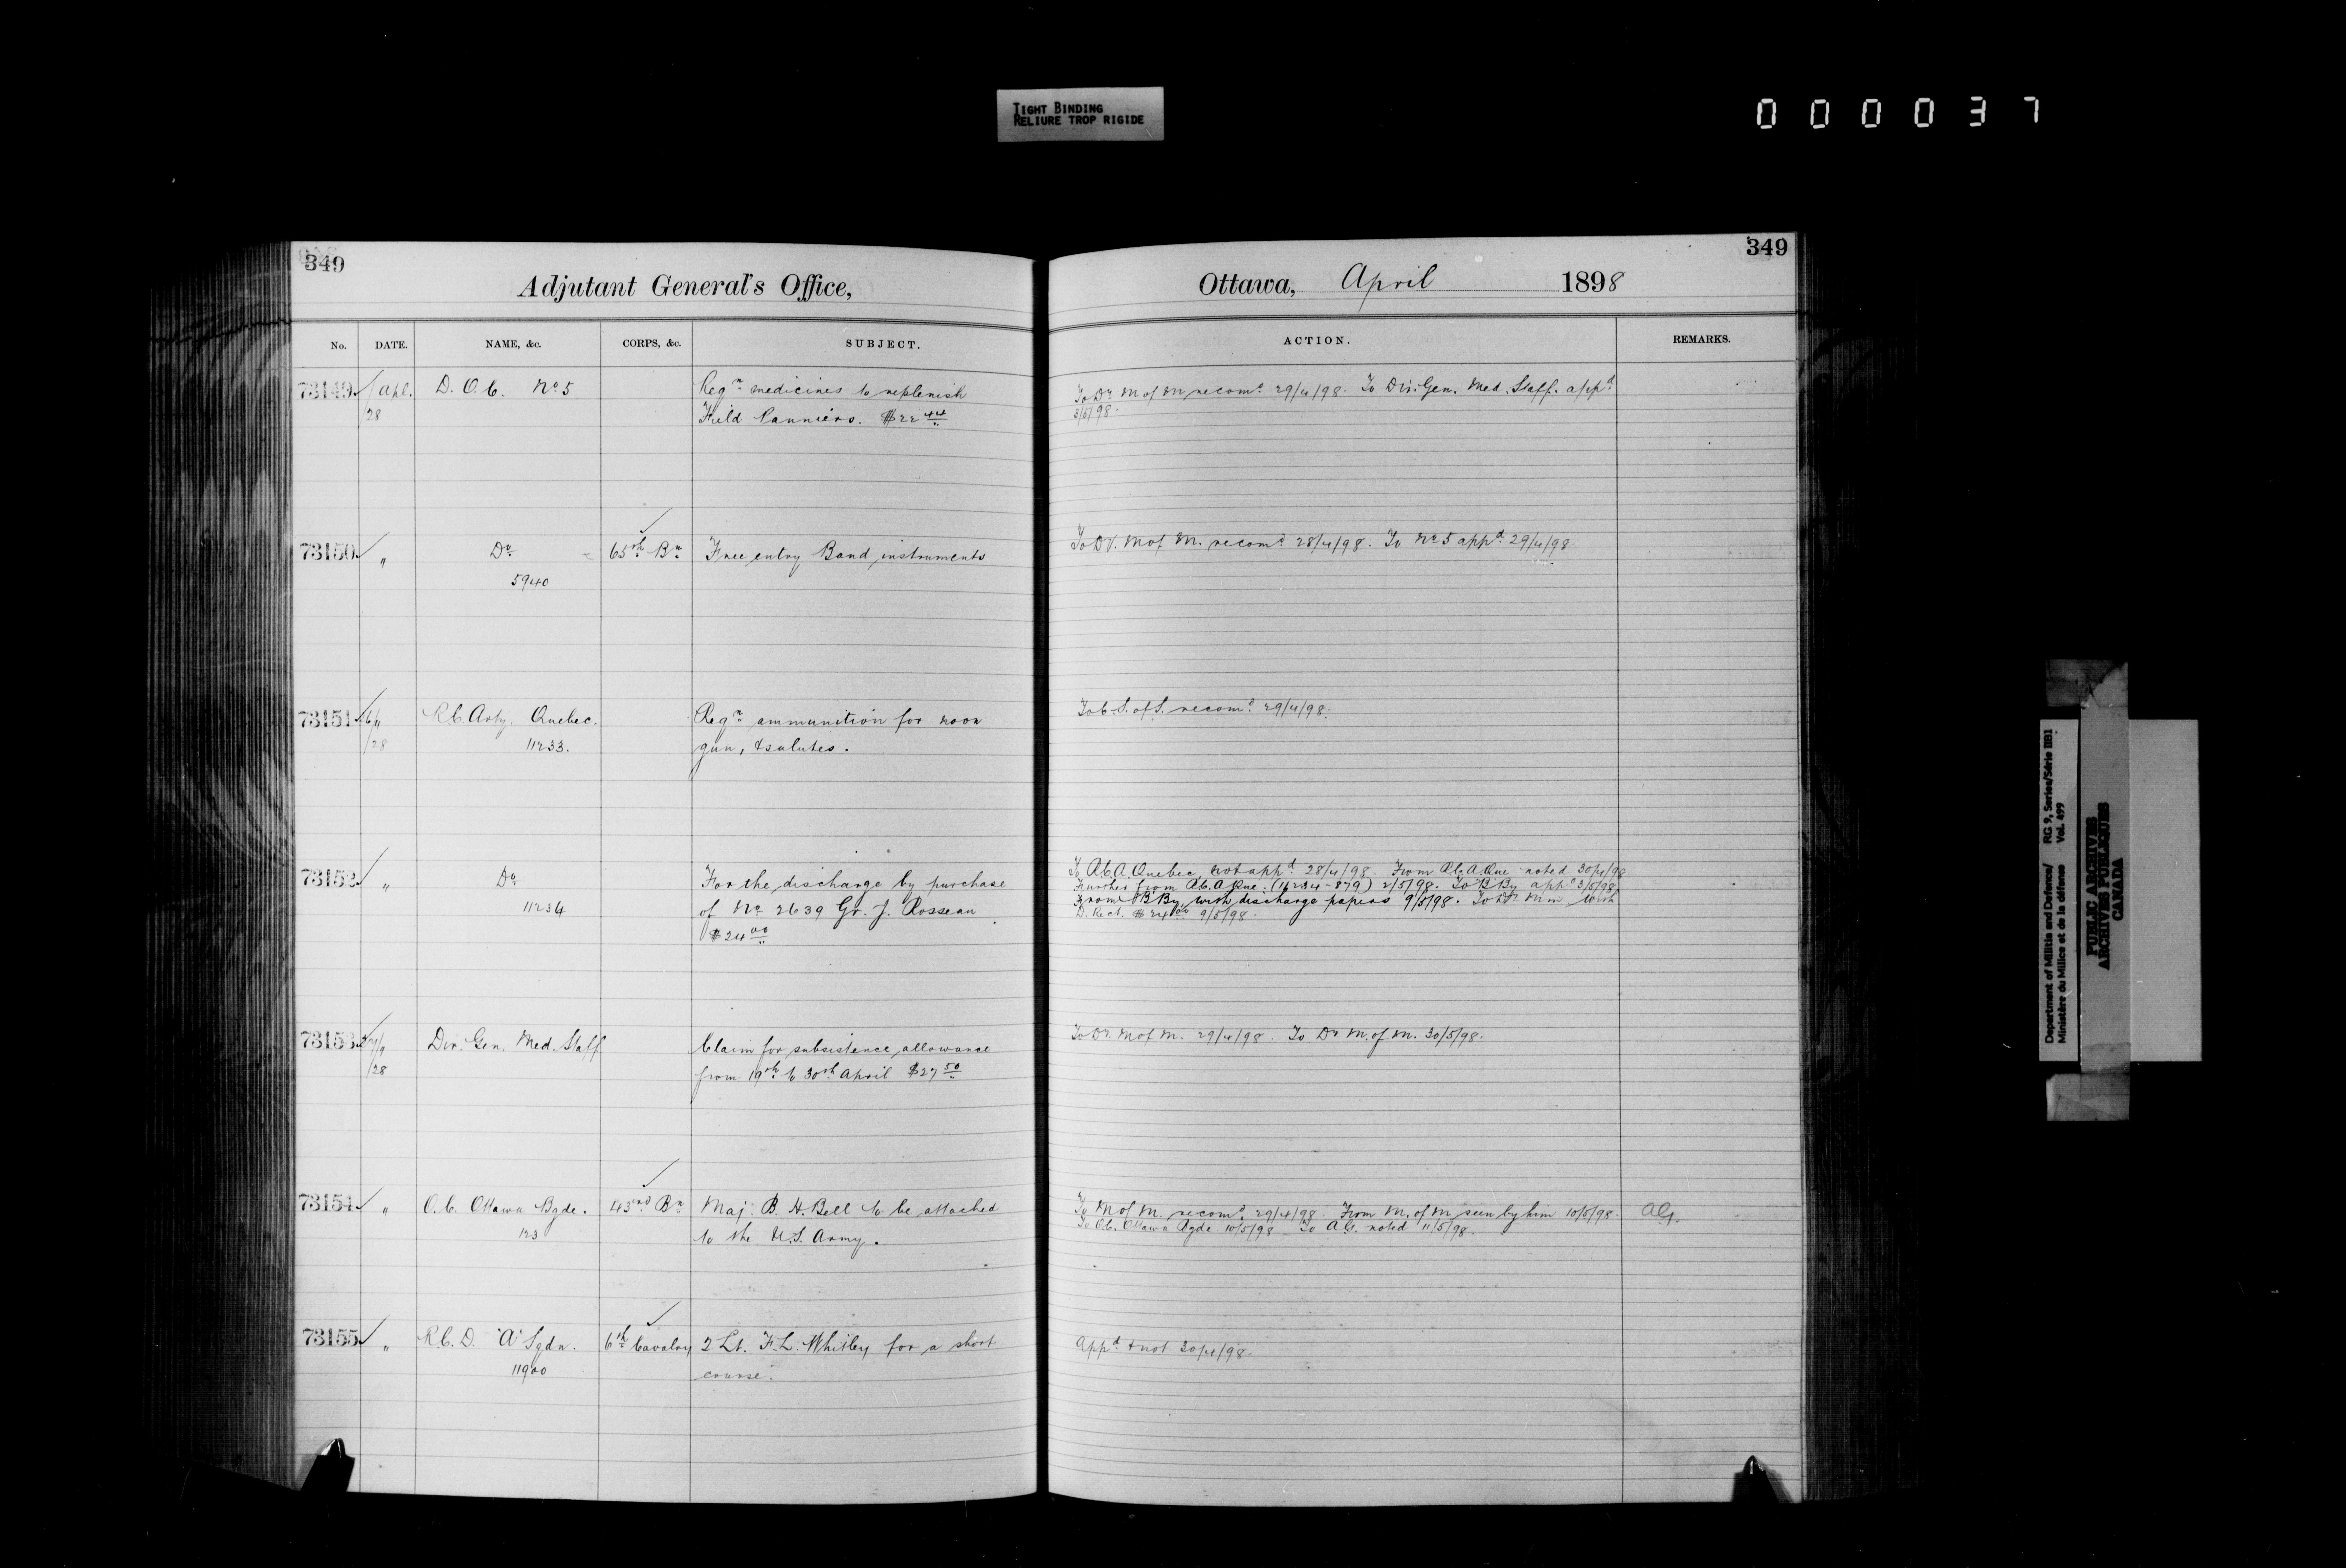 TIGHT BINDING
RELIURE TROP RIGIDE
000037
349
349
Adjutant General's Office,
Ottawa, April 1898
No. DATE. NAME, &c. CORPS, &c. SUBJECT. ACTION. REMARKS.
73149 Apl. D. O. C. No 5 Reqn medicines to replenish
28 Field Panniers. $22 44
To Dr. M of M recomd 29/4/98. To Dir. Gen. Med. Staff. appd
3/5/98.
73150 " Do 65th Bn Free entry Band instruments
5940
To D. M of M. recomd 28/4/98. To No 5 appd 29/4/98
73151 R.C. Arty. Quebec. Reqn ammunition for noon
28 11233. gun, & salutes.
To C.S. of S. recomd 29/4/98.
73152 " Do For the discharge by purchase
11234 of No 2639 Gr. J. Rosseau
$24 00
To R.C.A Quebec, not appd 28/4/98. From R.C.A Que noted 30/4/98
Further from R.C.A Que: (11234-879) 2/5/98. To B By appd 3/5/98
From B By, with discharge papers 9/5/98. To Dr M m with
D. Rect. $24 00 9/5/98.
73153 Dir. Gen. Med. Staff Claim for subsistence allowance
28 from 19th to 30th April $27 50
To Dr. M of M. 29/4/98. To Dr M. of M. 30/5/98.
73154 " O.C. Ottawa Bgde. 43rd Bn Maj. B. H. Bell to be attached
123 to the U.S. Army.
To M of M. recomd 29/4/98. From M. of M seen by him 10/5/98. AG.
To O.C. Ottawa Bgde 10/5/98 To A.G. noted 11/5/98.
73155 " R.C.D. "A" Sqdn. 6th Cavalry 2 Lt. F.L. Whitley for a short
11900 course.
Appd & not 30/4/98.
Department of Militia and Defence/ RG 9, Series/Série IIB1
Ministère du Milice et de la défense Vol. 499
PUBLIC ARCHIVES
ARCHIVES PUBLIQUES
CANADA